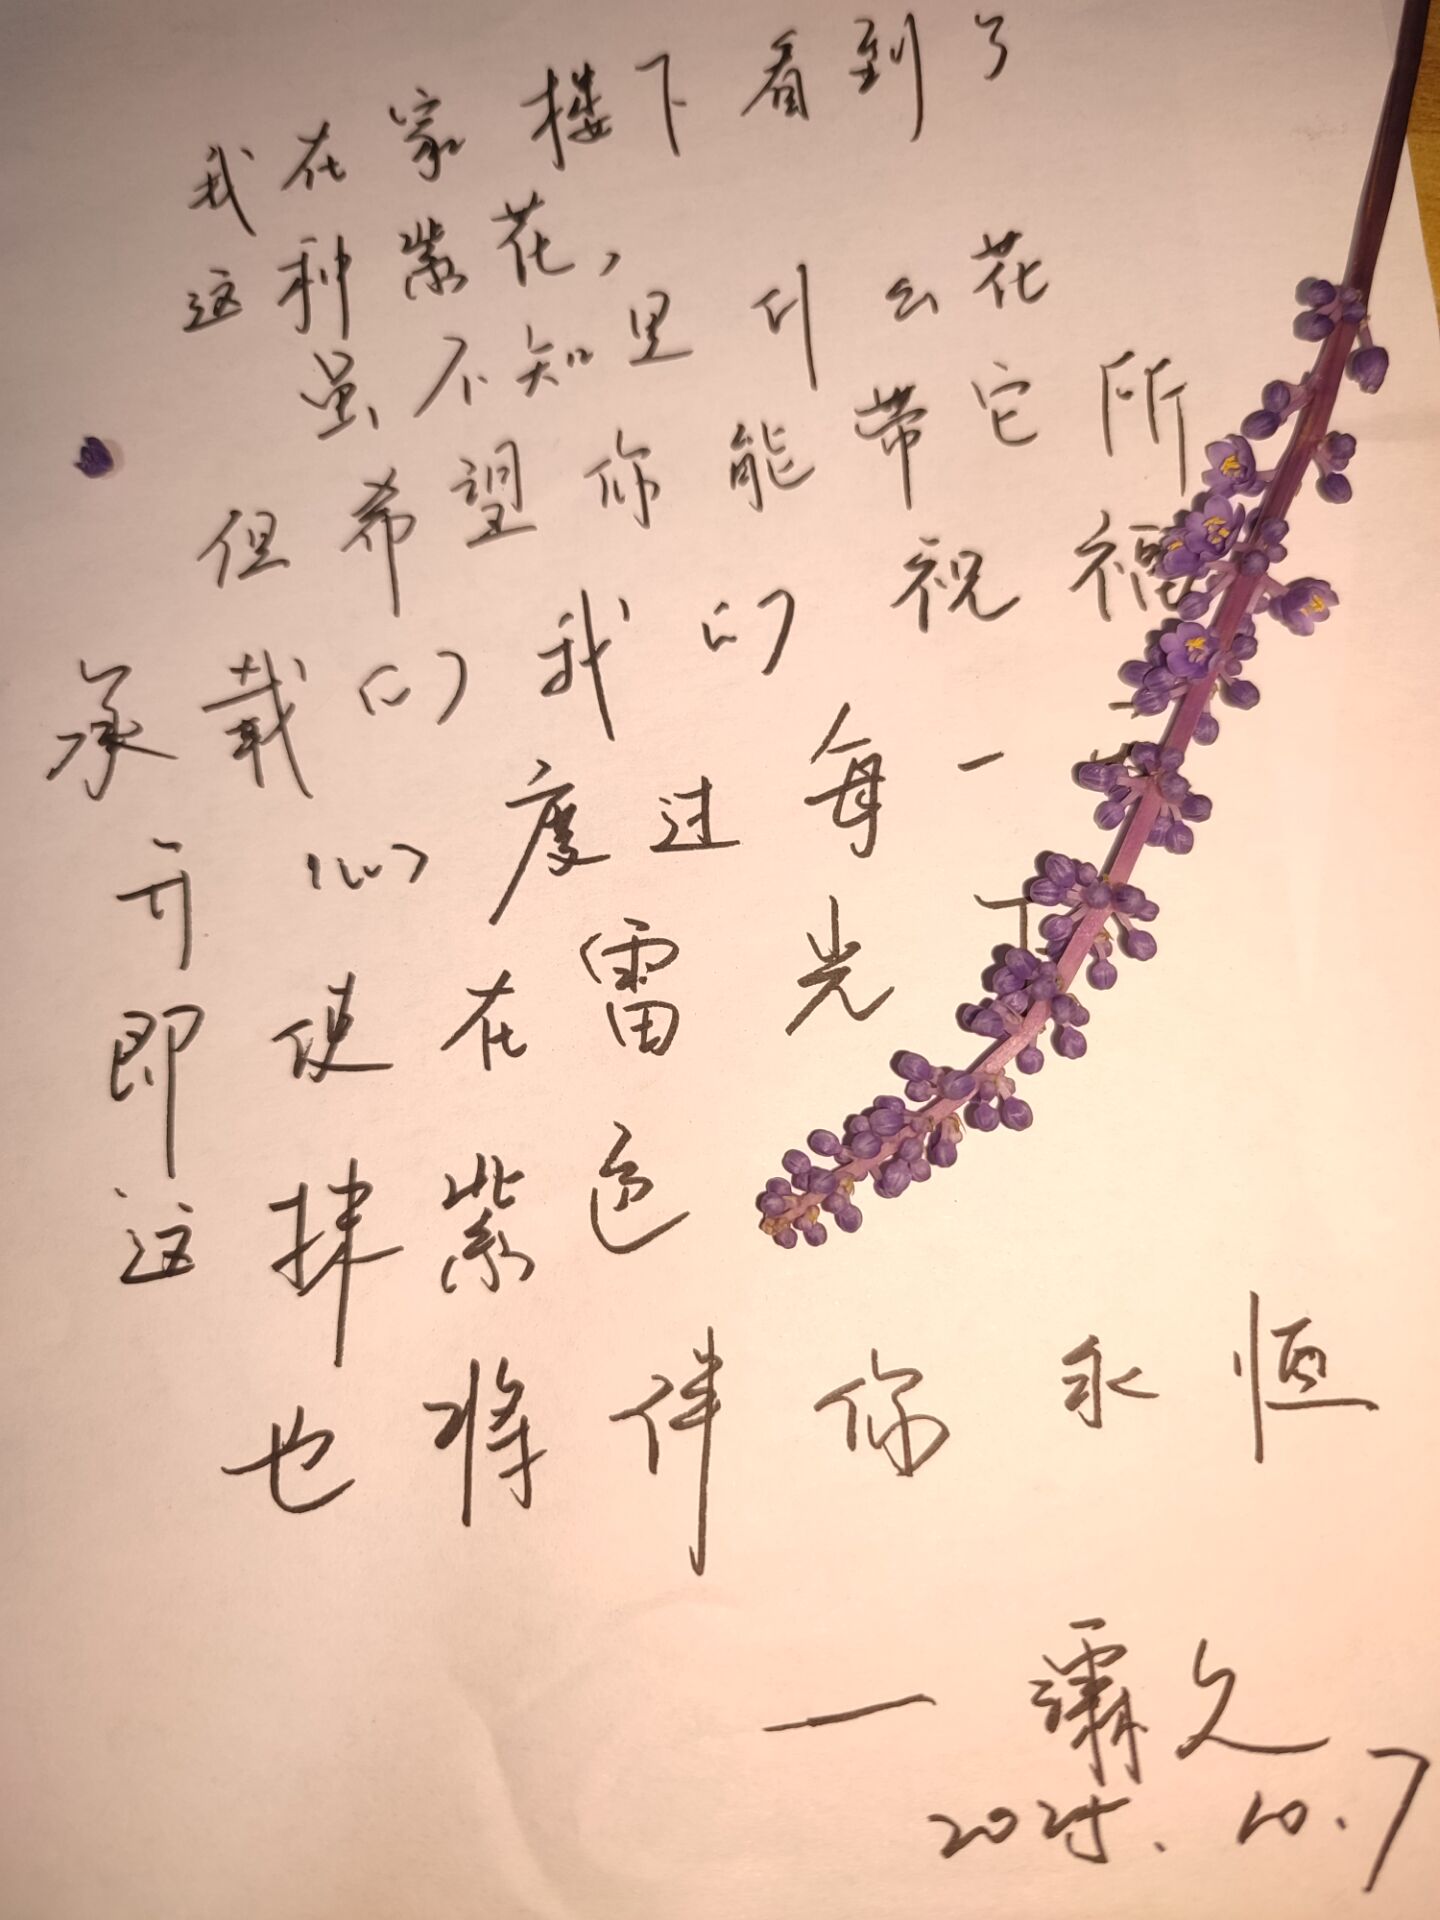 我在家楼下看到了
这种紫花,
虽不知是什么花
但希望你能带它所
承载的我的祝福
开心的度过每一
即使在雷光下
这抹紫色
也将伴你永恒
— 霸久
2025.10.7